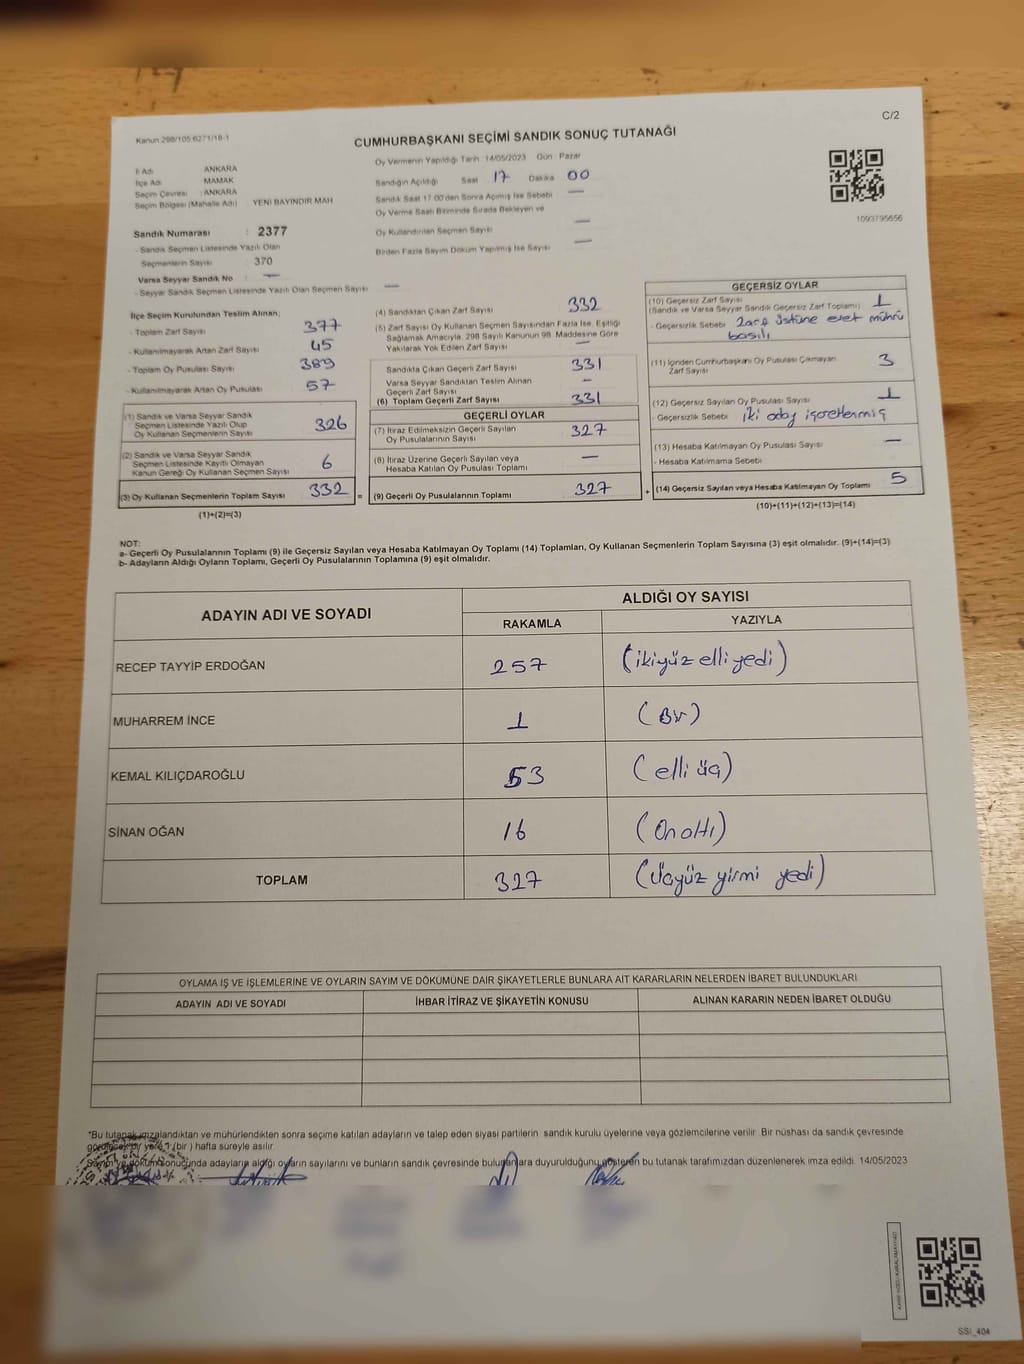 C/2
Kanun 298/105 6271/18-1
CUMHURBAŞKANI SEÇİMİ SANDIK SONUÇ TUTANAĞI
İl Adı ANKARA
İlçe Adı MAMAK
Seçim Çevresi : ANKARA
Seçim Bölgesi (Mahalle Adı) YENİ BAYINDIR MAH.
Oy Vermenin Yapıldığı Tarih 14/05/2023 Gün Pazar
Sandığın Açıldığı Saat 17 Dakika 00
Sandık Saat 17:00'den Sonra Açılmış İse Sebebi —
Oy Verme Saati Bitiminde Sırada Bekleyen ve
Oy Kullandırılan Seçmen Sayısı —
Birden Fazla Sayım Döküm Yapılmış İse Sayısı —
1093795656
Sandık Numarası : 2377
- Sandık Seçmen Listesinde Yazılı Olan
Seçmenlerin Sayısı : 370
Varsa Seyyar Sandık No : —
- Seyyar Sandık Seçmen Listesinde Yazılı Olan Seçmen Sayısı —
İlçe Seçim Kurulundan Teslim Alınan;
- Toplam Zarf Sayısı 377
- Kullanılmayarak Artan Zarf Sayısı 45
- Toplam Oy Pusulası Sayısı 389
- Kullanılmayarak Artan Oy Pusulası 57
(1) Sandık ve Varsa Seyyar Sandık
Seçmen Listesinde Yazılı Olup
Oy Kullanan Seçmenlerin Sayısı 326
(2) Sandık ve Varsa Seyyar Sandık
Seçmen Listesinde Kayıtlı Olmayan
Kanun Gereği Oy Kullanan Seçmen Sayısı 6
(3) Oy Kullanan Seçmenlerin Toplam Sayısı 332 =
(1)+(2)=(3)
(4) Sandıktan Çıkan Zarf Sayısı 332
(5) Zarf Sayısı Oy Kullanan Seçmen Sayısından Fazla İse, Eşitliği
Sağlamak Amacıyla, 298 Sayılı Kanunun 98. Maddesine Göre
Yakılarak Yok Edilen Zarf Sayısı —
Sandıkta Çıkan Geçerli Zarf Sayısı 331
Varsa Seyyar Sandıktan Teslim Alınan
Geçerli Zarf Sayısı —
(6) Toplam Geçerli Zarf Sayısı 331
GEÇERLİ OYLAR
(7) İtiraz Edilmeksizin Geçerli Sayılan
Oy Pusulalarının Sayısı 327
(8) İtiraz Üzerine Geçerli Sayılan veya
Hesaba Katılan Oy Pusulası Toplamı —
(9) Geçerli Oy Pusulalarının Toplamı 327 +
GEÇERSİZ OYLAR
(10) Geçersiz Zarf Sayısı 1
(Sandık ve Varsa Seyyar Sandık Geçersiz Zarf Toplamı)
- Geçersizlik Sebebi Zarf üstüne evet mührü
basılı
(11) İçinden Cumhurbaşkanı Oy Pusulası Çıkmayan
Zarf Sayısı 3
(12) Geçersiz Sayılan Oy Pusulası Sayısı 1
- Geçersizlik Sebebi iki aday işaretlenmiş
(13) Hesaba Katılmayan Oy Pusulası Sayısı —
- Hesaba Katılmama Sebebi
(14) Geçersiz Sayılan veya Hesaba Katılmayan Oy Toplamı 5
(10)+(11)+(12)+(13)=(14)
NOT:
a- Geçerli Oy Pusulalarının Toplamı (9) ile Geçersiz Sayılan veya Hesaba Katılmayan Oy Toplamı (14) Toplamları, Oy Kullanan Seçmenlerin Toplam Sayısına (3) eşit olmalıdır. (9)+(14)=(3)
b- Adayların Aldığı Oyların Toplamı, Geçerli Oy Pusulalarının Toplamına (9) eşit olmalıdır.
ADAYIN ADI VE SOYADI ALDIĞI OY SAYISI
RAKAMLA YAZIYLA
RECEP TAYYİP ERDOĞAN 257 (ikiyüz elli yedi)
MUHARREM İNCE 1 (Bir)
KEMAL KILIÇDAROĞLU 53 (elli üç)
SİNAN OĞAN 16 (Onaltı)
TOPLAM 327 (Üçyüz yirmi yedi)
OYLAMA İŞ VE İŞLEMLERİNE VE OYLARIN SAYIM VE DÖKÜMÜNE DAİR ŞİKAYETLERLE BUNLARA AİT KARARLARIN NELERDEN İBARET BULUNDUKLARI
ADAYIN ADI VE SOYADI İHBAR İTİRAZ VE ŞİKAYETİN KONUSU ALINAN KARARIN NEDEN İBARET OLDUĞU
*Bu tutanak imzalandıktan ve mühürlendikten sonra seçime katılan adayların ve talep eden siyasi partilerin sandık kurulu üyelerine veya gözlemcilerine verilir. Bir nüshası da sandık çevresinde
görülecek bir yere 1 (bir) hafta süreyle asılır.
Sayım ve döküm sonucunda adayların aldığı oyların sayılarını ve bunların sandık çevresinde bulunanlara duyurulduğunu gösteren bu tutanak tarafımızdan düzenlenerek imza edildi. 14/05/2023
SSİ_404